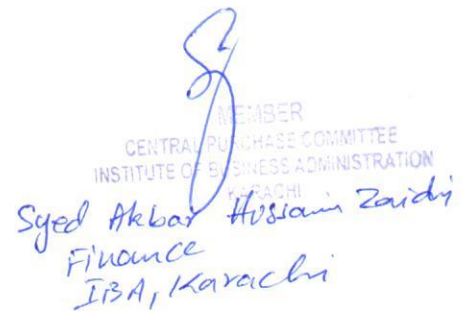 MEMBER
CENTRAL PURCHASE COMMITTEE
INSTITUTE OF BUSINESS ADMINISTRATION
KARACHI
Syed Akbar Hussain Zaidi
Finance
IBA, Karachi